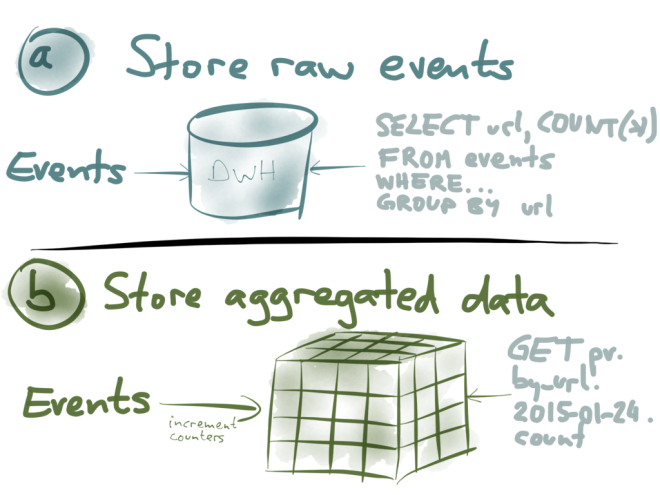 a Store raw events
Events
DWH
SELECT url, COUNT(*)
FROM events
WHERE...
GROUP BY url
b Store aggregated data
Events
increment
counters
GET pv.
by_url.
2015-01-24.
count